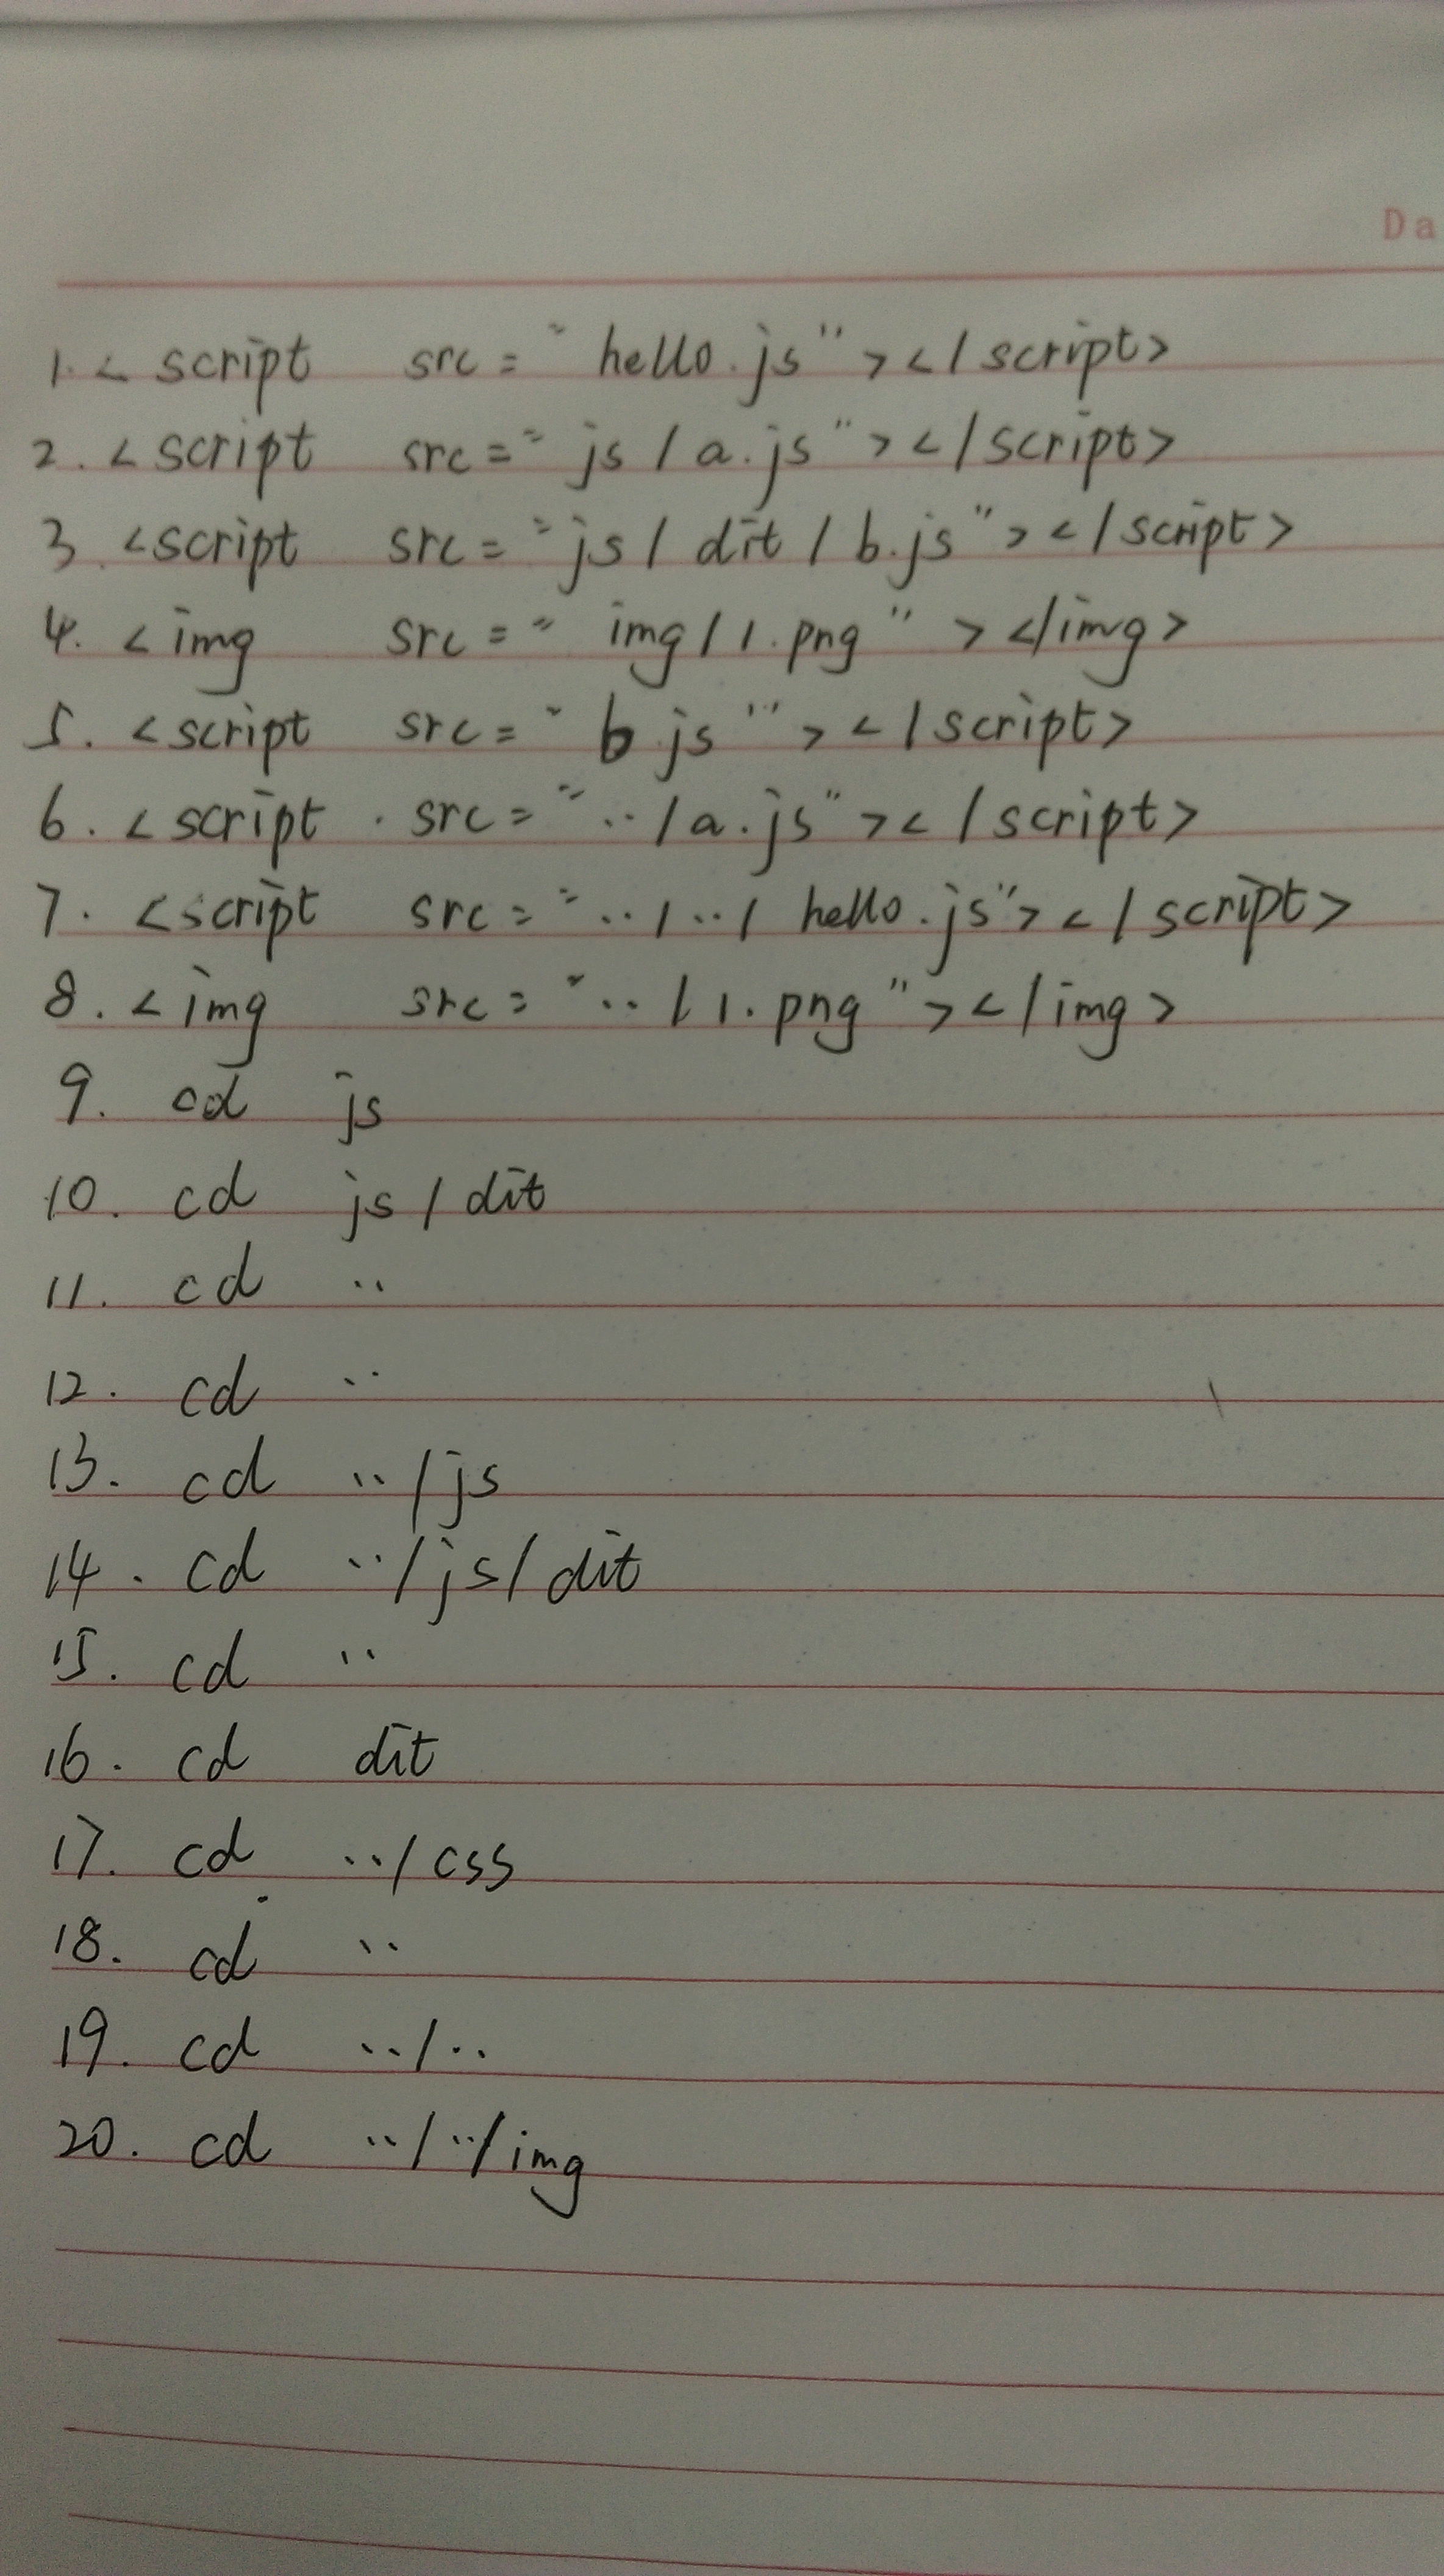 Da
1. <script src="hello.js"></script>
2. <script src="js/a.js"></script>
3. <script src="js/dit/b.js"></script>
4. <img src="img/1.png"></img>
5. <script src="b.js"></script>
6. <script src="../a.js"></script>
7. <script src="../../hello.js"></script>
8. <img src="../1.png"></img>
9. cd js
10. cd js/dit
11. cd ..
12. cd ..
13. cd ../js
14. cd ../js/dit
15. cd ..
16. cd dit
17. cd ../css
18. cd ..
19. cd ../..
20. cd ../../img